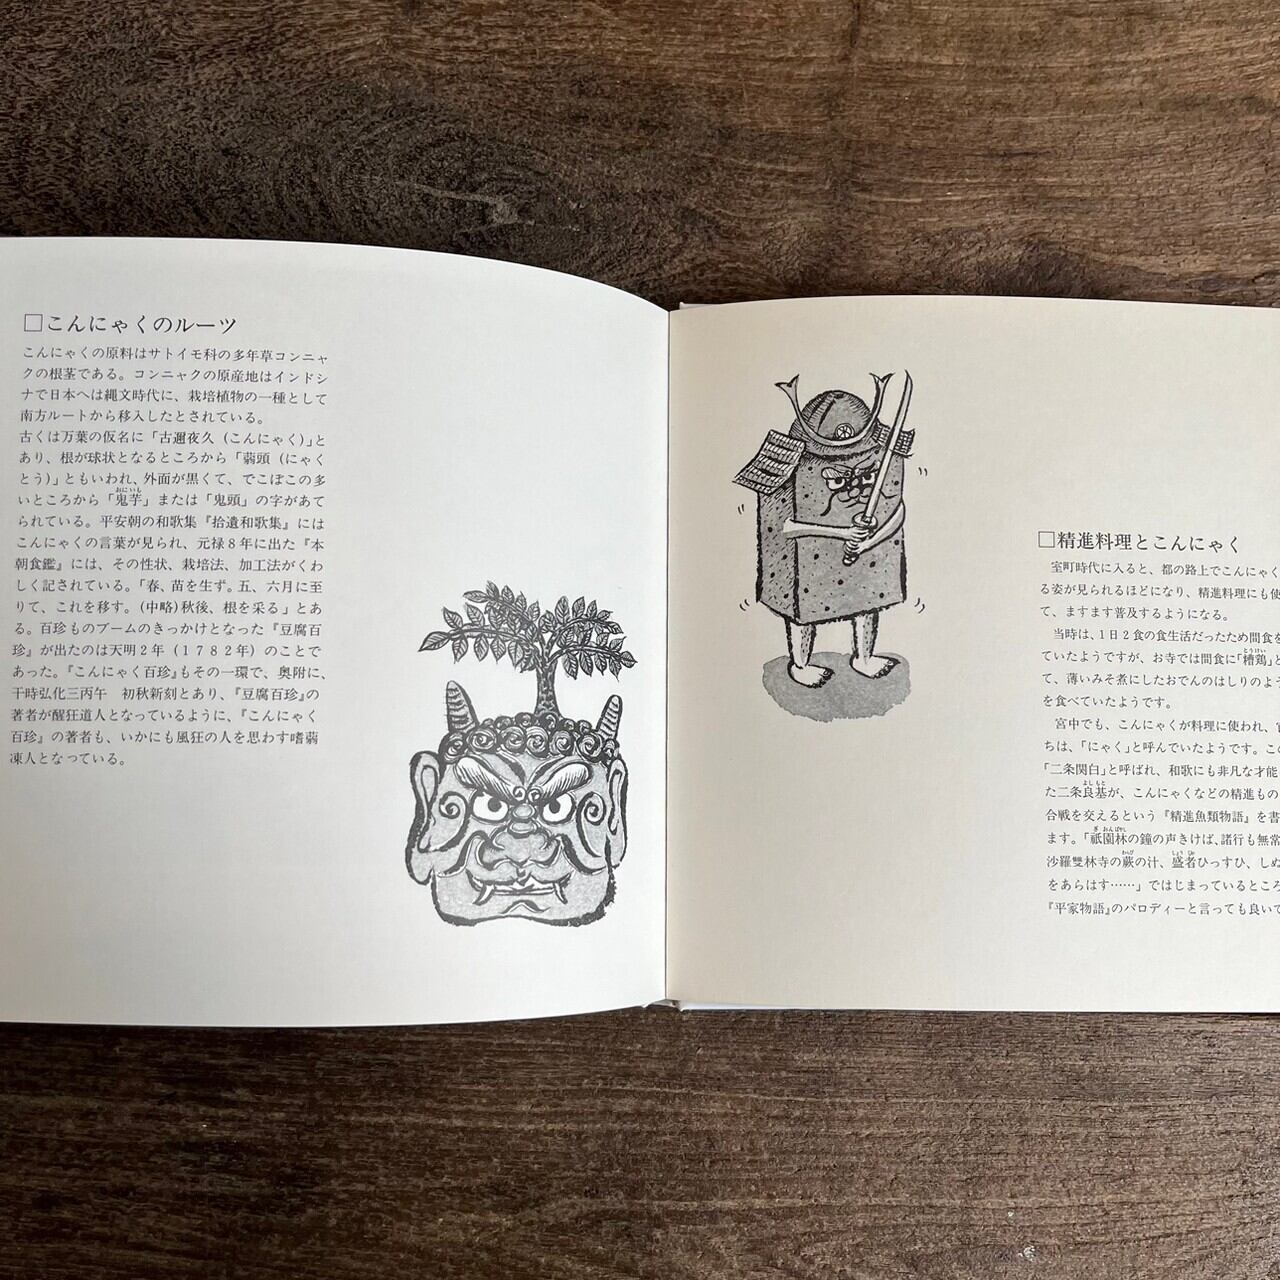 □こんにゃくのルーツ
こんにゃくの原料はサトイモ科の多年草コンニャ
クの根茎である。コンニャクの原産地はインドシ
ナで日本へは縄文時代に、栽培植物の一種として
南方ルートから移入したとされている。
古くは万葉の仮名に「古邇夜久（こんにゃく）」と
あり、根が球状となるところから「蒟頭（にゃく
とう）」ともいわれ、外面が黒くて、でこぼこの多
いところから「鬼芋」または「鬼頭」の字があて
られている。平安朝の和歌集『拾遺和歌集』には
こんにゃくの言葉が見られ、元禄８年に出た『本
朝食鑑』には、その性状、栽培法、加工法がくわ
しく記されている。「春、苗を生ず。五、六月に至
りて、これを移す。（中略）秋後、根を采る」とあ
る。百珍ものブームのきっかけとなった『豆腐百
珍』が出たのは天明２年（１７８２年）のことで
あった。『こんにゃく百珍』もその一環で、奥附に、
干時弘化三丙午　初秋新刻とあり、『豆腐百珍』の
著者が醒狂道人となっているように、『こんにゃく
百珍』の著者も、いかにも風狂の人を思わす嗜蒟
凍人となっている。
□精進料理とこんにゃく
室町時代に入ると、都の路上でこんにゃく
る姿が見られるほどになり、精進料理にも使
て、ますます普及するようになる。
当時は、１日２食の食生活だったため間食を
ていたようですが、お寺では間食に「糟鶏」と
て、薄いみそ煮にしたおでんのはしりのよう
を食べていたようです。
宮中でも、こんにゃくが料理に使われ、
ちは、「にゃく」と呼んでいたようです。この
「二条関白」と呼ばれ、和歌にも非凡な才能
た二条良基が、こんにゃくなどの精進もの
合戦を交えるという『精進魚類物語』を書
ます。「祇園林の鐘の声きけば、諸行も無常
沙羅雙林寺の蕨の汁、盛者ひっすひ、しぬ
をあらはす……」ではじまっているところ
『平家物語』のパロディーと言っても良いで